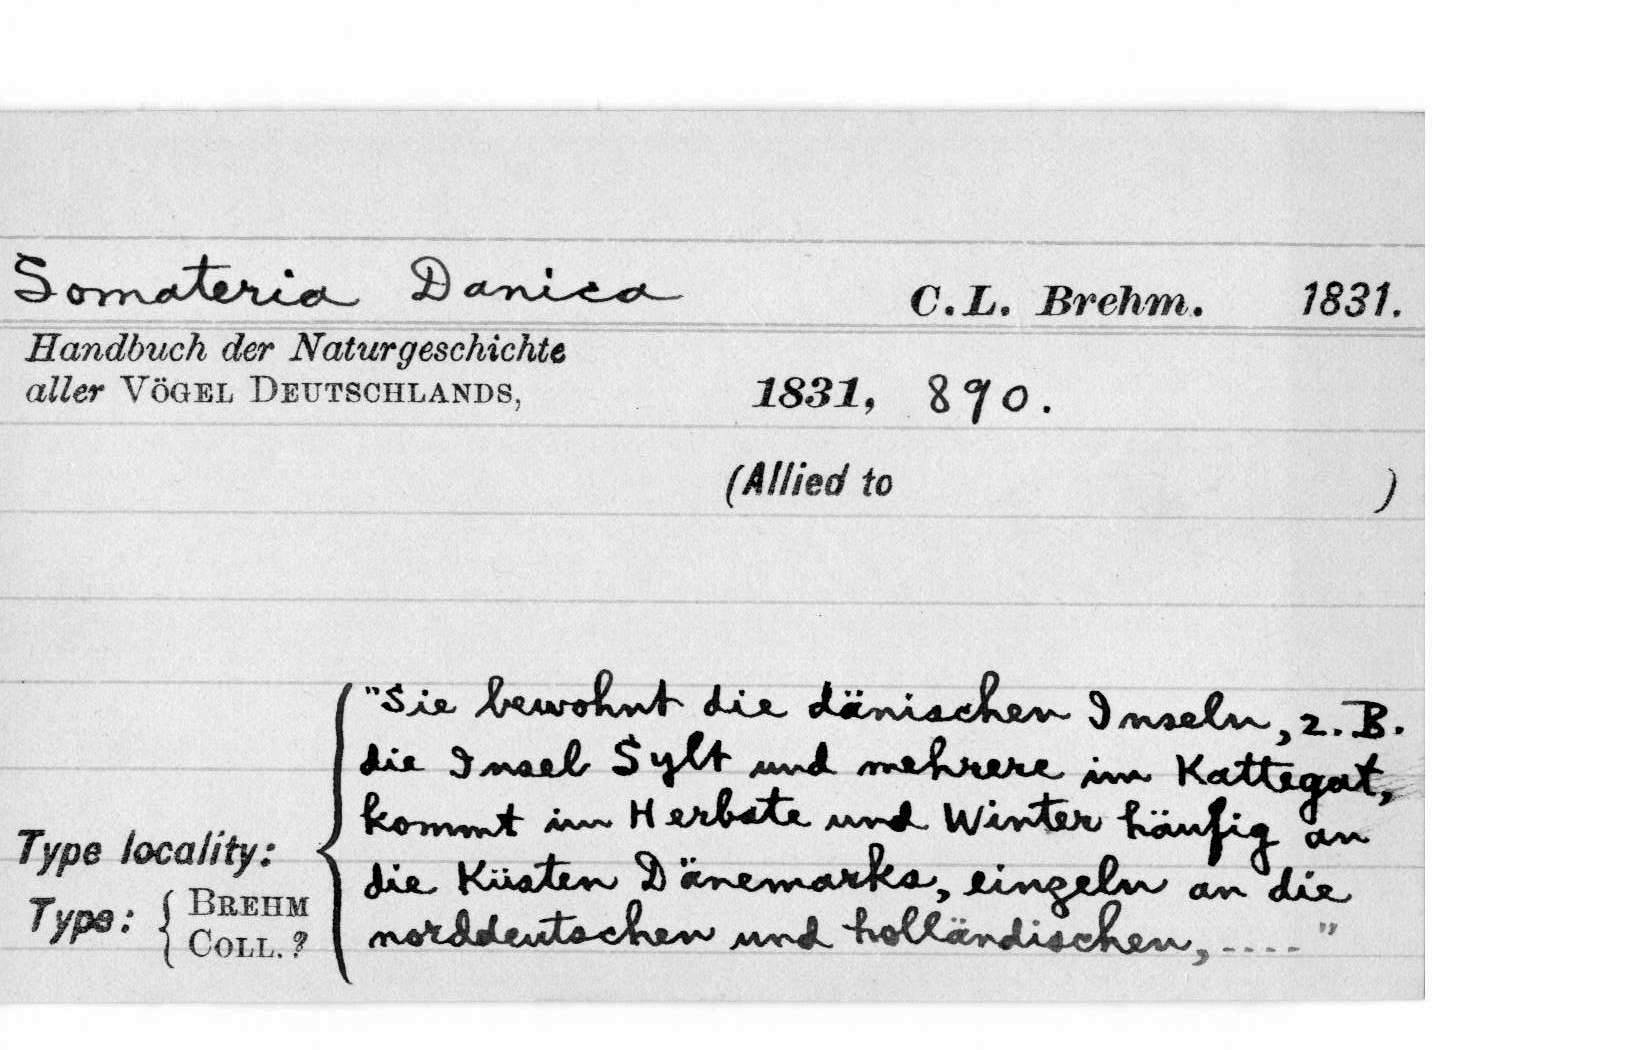 Somateria Danica C.L. Brehm. 1831.
Handbuch der Naturgeschichte
aller VÖGEL DEUTSCHLANDS, 1831, 890.
(Allied to )
"Sie bewohnt die dänischen Inseln, z. B.
die Insel Sylt und mehrere im Kattegat,
kommt im Herbste und Winter häufig an
Type locality: die Küsten Dänemarks, einzeln an die
Type: { BREHM COLL. ? norddeutschen und holländischen, ---- "